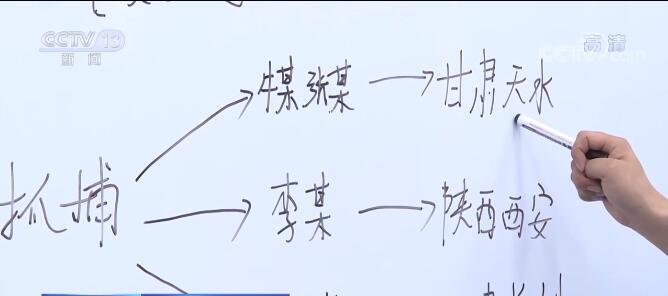 CCTV 13
新闻
高清
CCTV.com
牛某 张某 → 甘肃天水
抓捕
李某 → 陕西西安